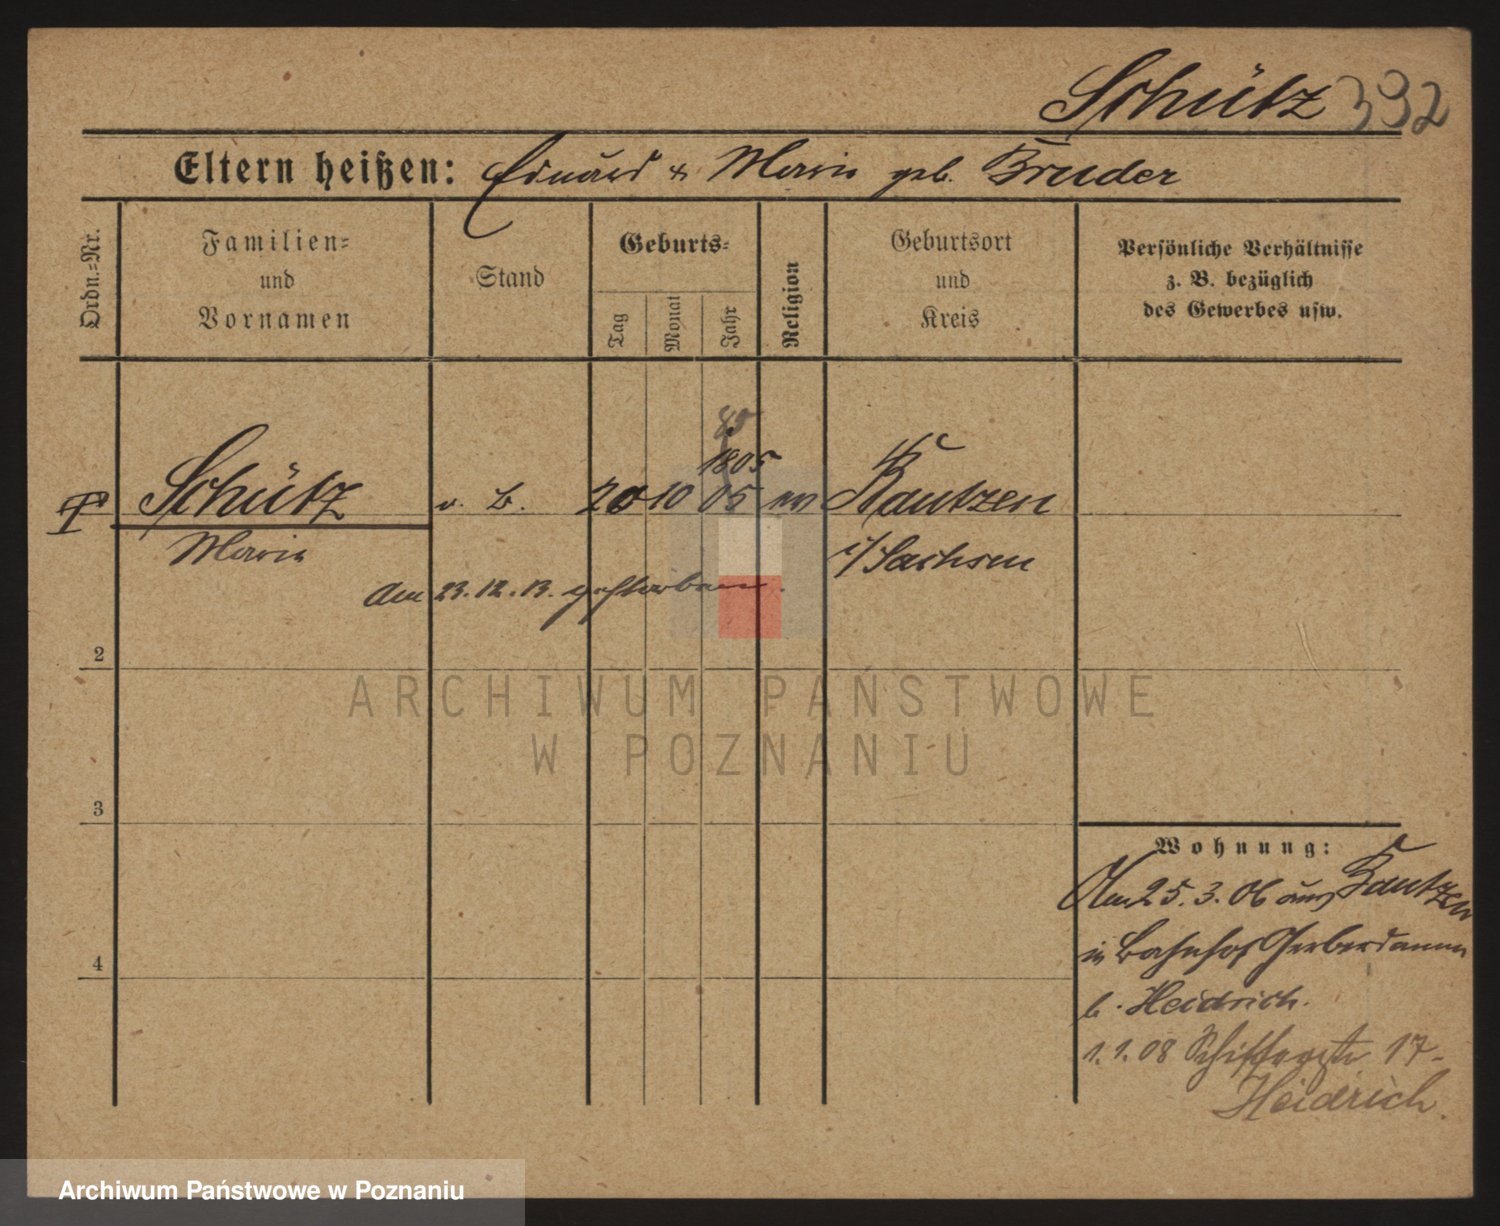 Schütz 392
Eltern heißen: Eduard & Marie geb. Bruder
Ordn.=Nr.
Familien=
und
Vornamen
Stand
Geburts=
Tag
Monat
Jahr
Religion
Geburtsort
und
Kreis
Persönliche Verhältnisse
z. B. bezüglich
des Gewerbes usw.
85
1805
Schütz o. B. 20 10 05 Bautzen
Marie i/Sachsen
Am 23.12.13. gestorben.
2
3
4
Wohnung:
Am 25.3.06 aus Bautzen
in Bahnhof Gerberdamm
b. Heidrich.
1.1.08 17
Heidrich.
ARCHIWUM PAŃSTWOWE
W POZNANIU
Archiwum Państwowe w Poznaniu